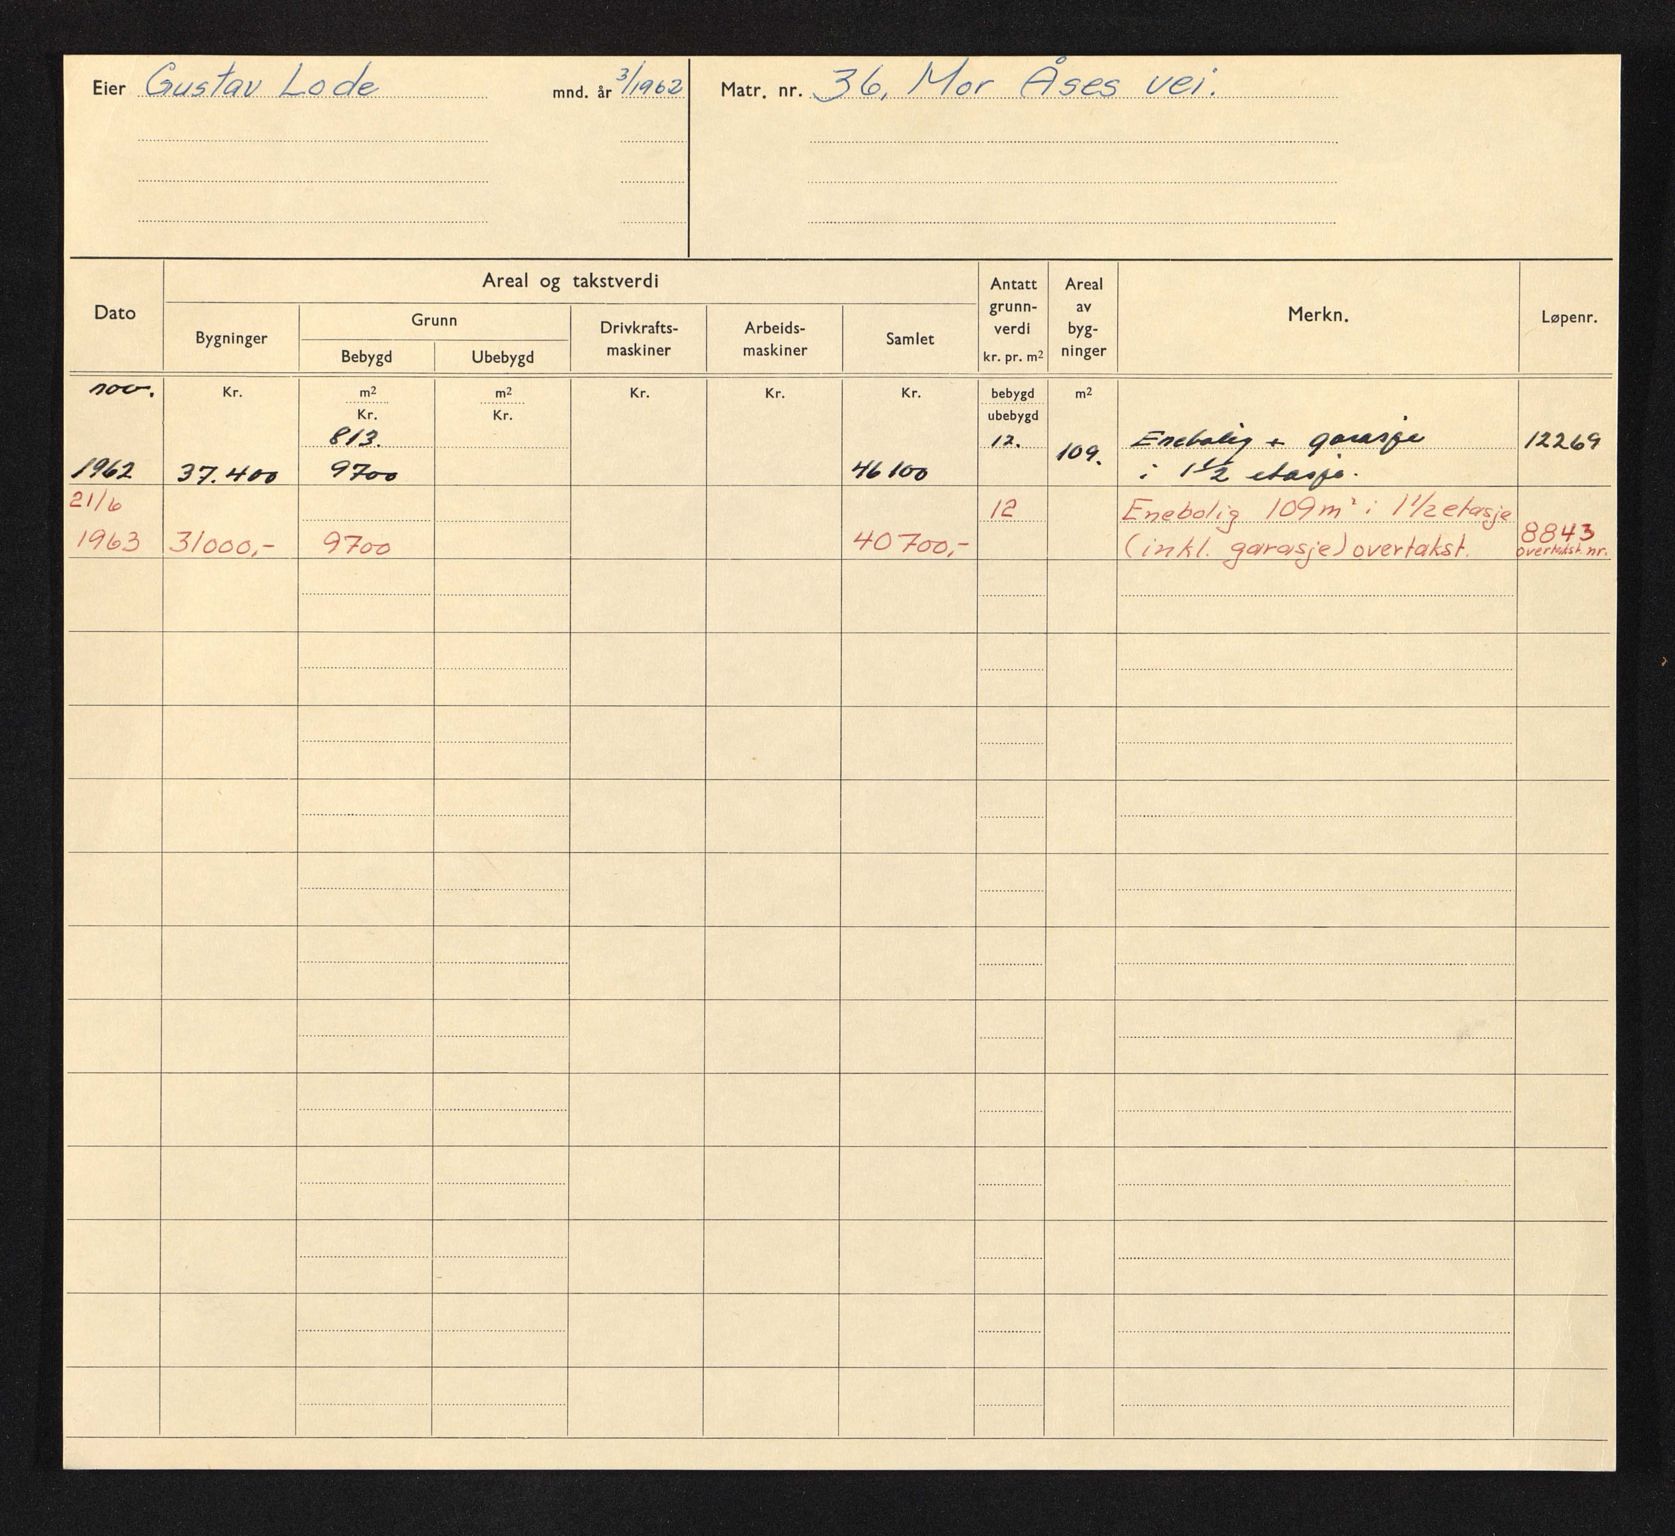 Eier Gustav Lode mnd. år 3/1962 Matr. nr. 36, Mor Åses vei.
Areal og takstverdi
Dato Bygninger Grunn Drivkrafts-maskiner Arbeids-maskiner Samlet Antatt grunn-verdi kr. pr. m2 Areal av byg-ninger Merkn. Løpenr.
Bebygd Ubebygd
nov. Kr. m2 m2 Kr. Kr. Kr. bebygd m2
Kr. Kr. ubebygd
813. 12. 109. Enebolig + garasje 12269
1962 37.400 9700 46100 i 1 1/2 etasje.
21/6 12 Enebolig 109 m² i 1 1/2 etasje
1963 31000,- 9700 40700,- (inkl. garasje) overtakst. 8843
overtakst nr.